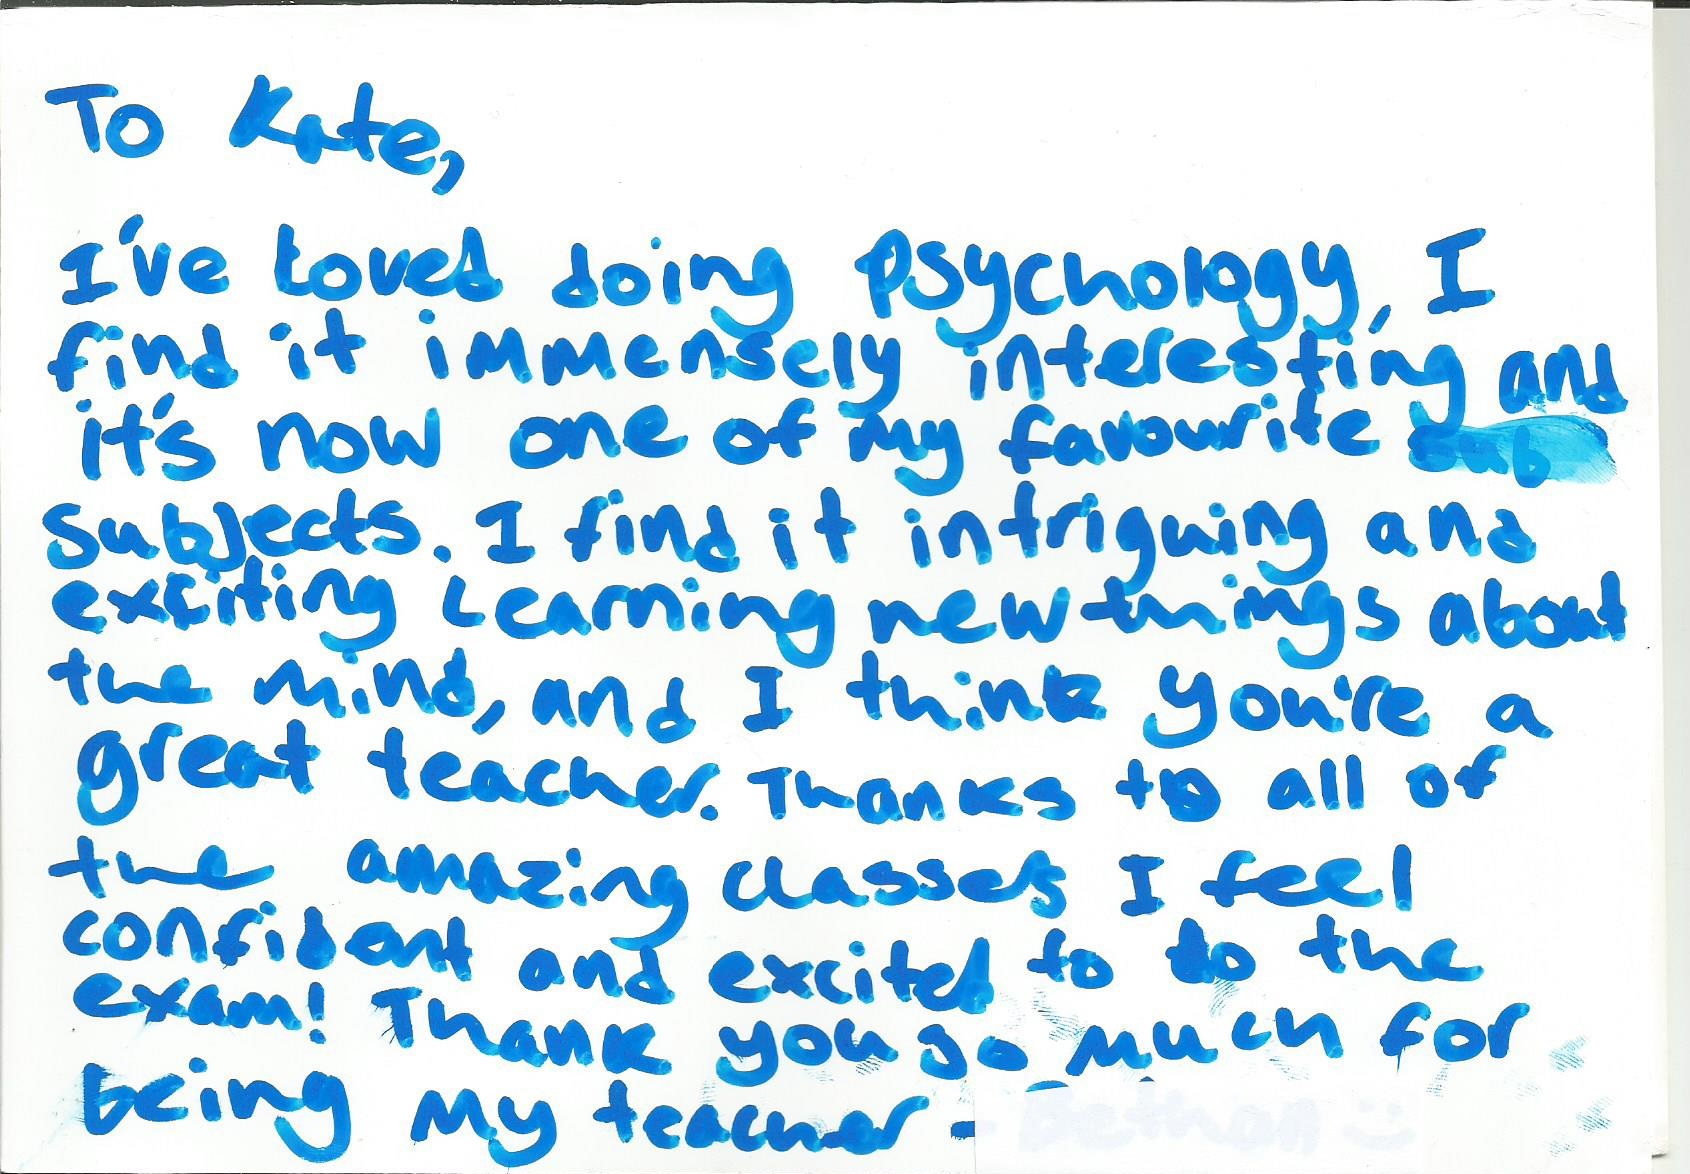 To Kate,
I've loved doing Psychology, I
find it immensely interesting and
it's now one of my favourite sub
subjects. I find it intriguing and
exciting learning new things about
the mind, and I think you're a
great teacher. Thanks to all of
the amazing classes I feel
confident and excited to to the
exam! Thank you so much for
being my teacher - Bethan :)